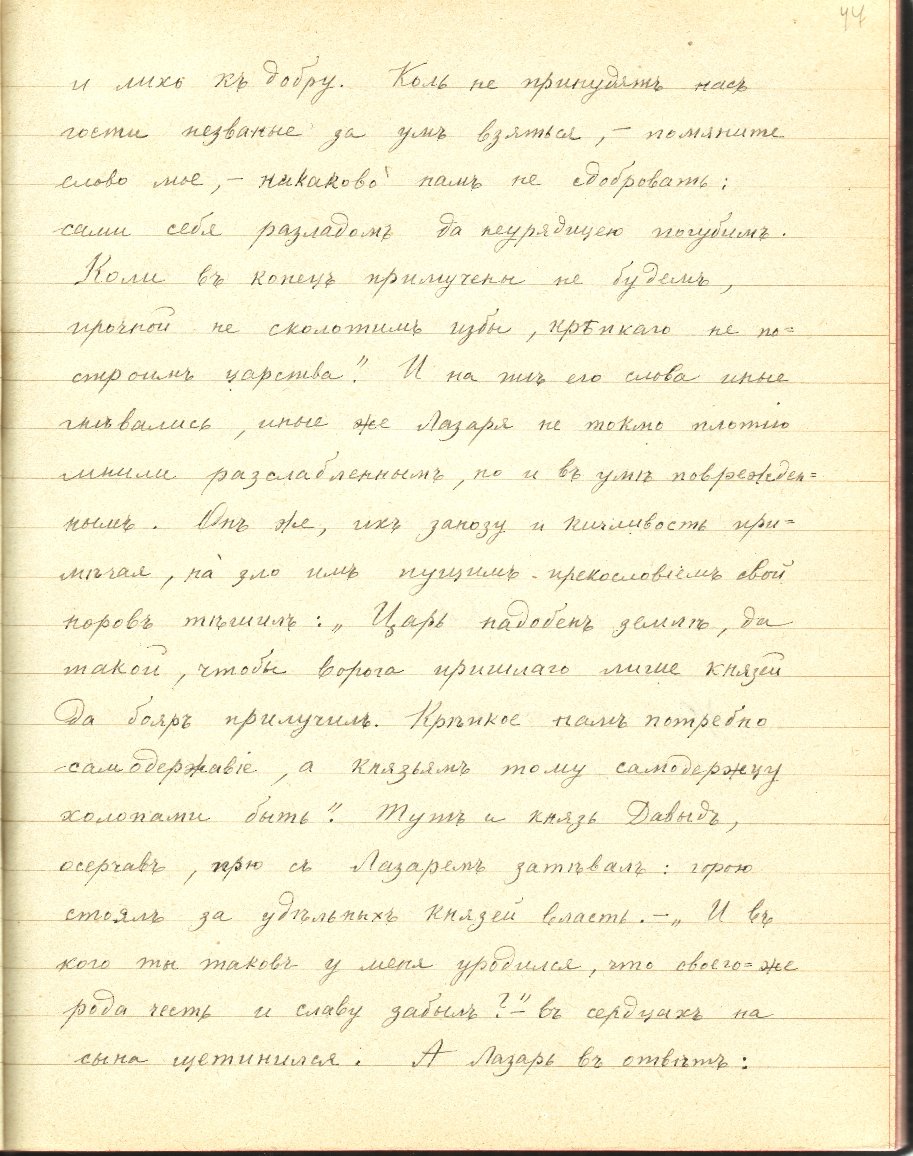 47
и лихо къ добру. Коль не принудятъ насъ
гости незваные за умъ взяться, – помяните
слово мое, – никаково намъ не сдобровать:
сами себя разладомъ да неурядицею погубимъ.
Коли въ конецъ примучены не будемъ,
прочной не сколотимъ избы, крѣпкаго не по=
строимъ царства". И на тѣ его слова иные
гнѣвались, иные же Лазаря не токмо плотію
мнили разслабленнымъ, но и въ умѣ поврежден=
нымъ. Онъ же, ихъ занозу и кичливость при=
мѣчая, на зло имъ пущимъ прекословіемъ свой
норовъ тѣшилъ: „Царь надобенъ землѣ, да
такой, чтобы ворога пришлаго лише князей
да бояръ прилучилъ. Крѣпкое намъ потребно
самодержавіе, а князьямъ тому самодержцу
холопами быть". Тутъ и князь Давыдъ,
осерчавъ, прю съ Лазаремъ затѣвалъ: горою
стоялъ за удѣльныхъ князей власть. – „И въ
кого ты таковъ у меня уродился, что своего=же
рода честь и славу забылъ?" – въ сердцахъ на
сына щетинился. А Лазарь въ отвѣтъ: